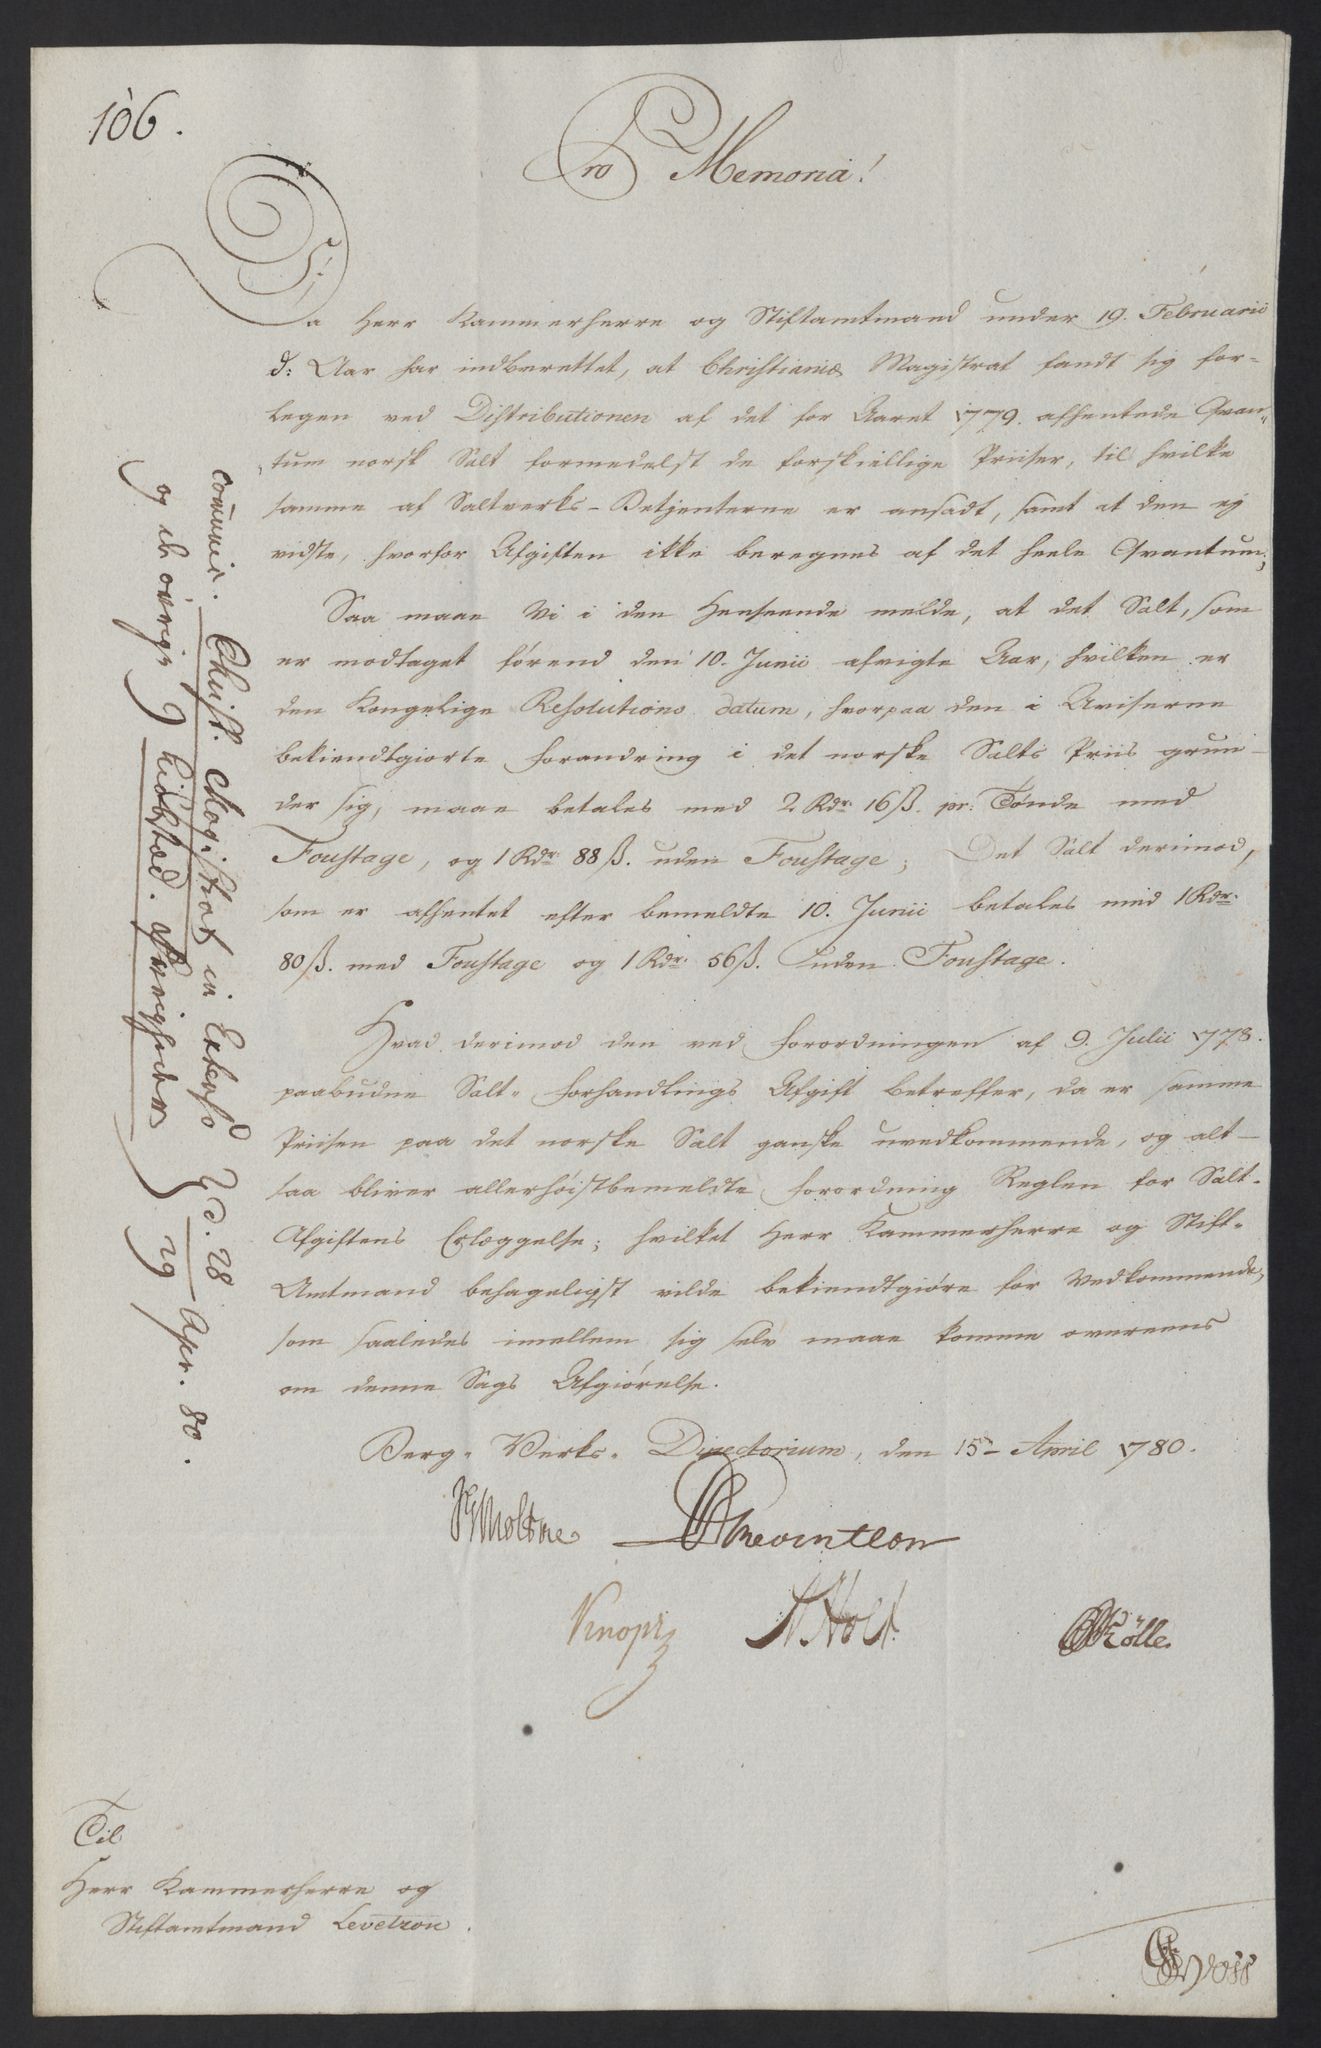 106.
Pro Memoria!
Da Herr Kammerherre og Stiftamtmand under 19. Februarii
d: Aar har indberettet, at Christianiæ Magistrat fandt sig for-
legen ved Distributionen af det for Aaret 1779. afhentede Qvan-
tum norsk Salt formedelst de forskiellige Priiser, til hvilke
samme af Saltverks-Betjenterne er ansadt, samt at den ej
vidste, hvorfor Afgiften ikke beregnes af det heele Qvantum;
Saa maae Vi i den Henseende melde, at det Salt, som
er modtaget förend den 10. Junii afvigte Aar, hvilken er
den Kongelige Resolutions datum, hvorpaa den i Aviserne
bekiendtgiorte Forandring i det norske Salts Priis grun-
der sig, maae betales med 2 Rdr. 16 ß. pr: Tönde med
Foustage, og 1 Rdr. 88 ß. uden Foustage; Det Salt derimod,
som er afhentet efter bemeldte 10. Junii betales med 1 Rdr.
80 ß. med Foustage og 1 Rdr. 56 ß. uden Foustage.
Hvad derimod den ved Forordningen af 9. Julii 1778.
paabudne Salt-Forhandlings Afgift betreffer, da er samme
Priisen paa det norske Salt ganske uvedkommende, og alt-
saa bliver allerhöistbemeldte Forordning Reglen for Salt-
Afgiftens Erlæggelse; hvilket Herr Kammerherre og Stift-
Amtmand behageligst vilde bekiendtgiöre for Vedkommende,
som saaledes imellem sig selv maae komme overeens
om denne Sags Afgiörelse.
Berg-Verks-Directorium, den 15de April 1780.
Moltke Reventlow
Knoph Holt Rölle
Til
Herr Kammerherre og
Stiftamtmand Levetzow.
Voss
communic. Christ. Magistrat in Extenso d. 28
og de övrige Kiöbstæd. Övrigheder 29 Apr. 80.